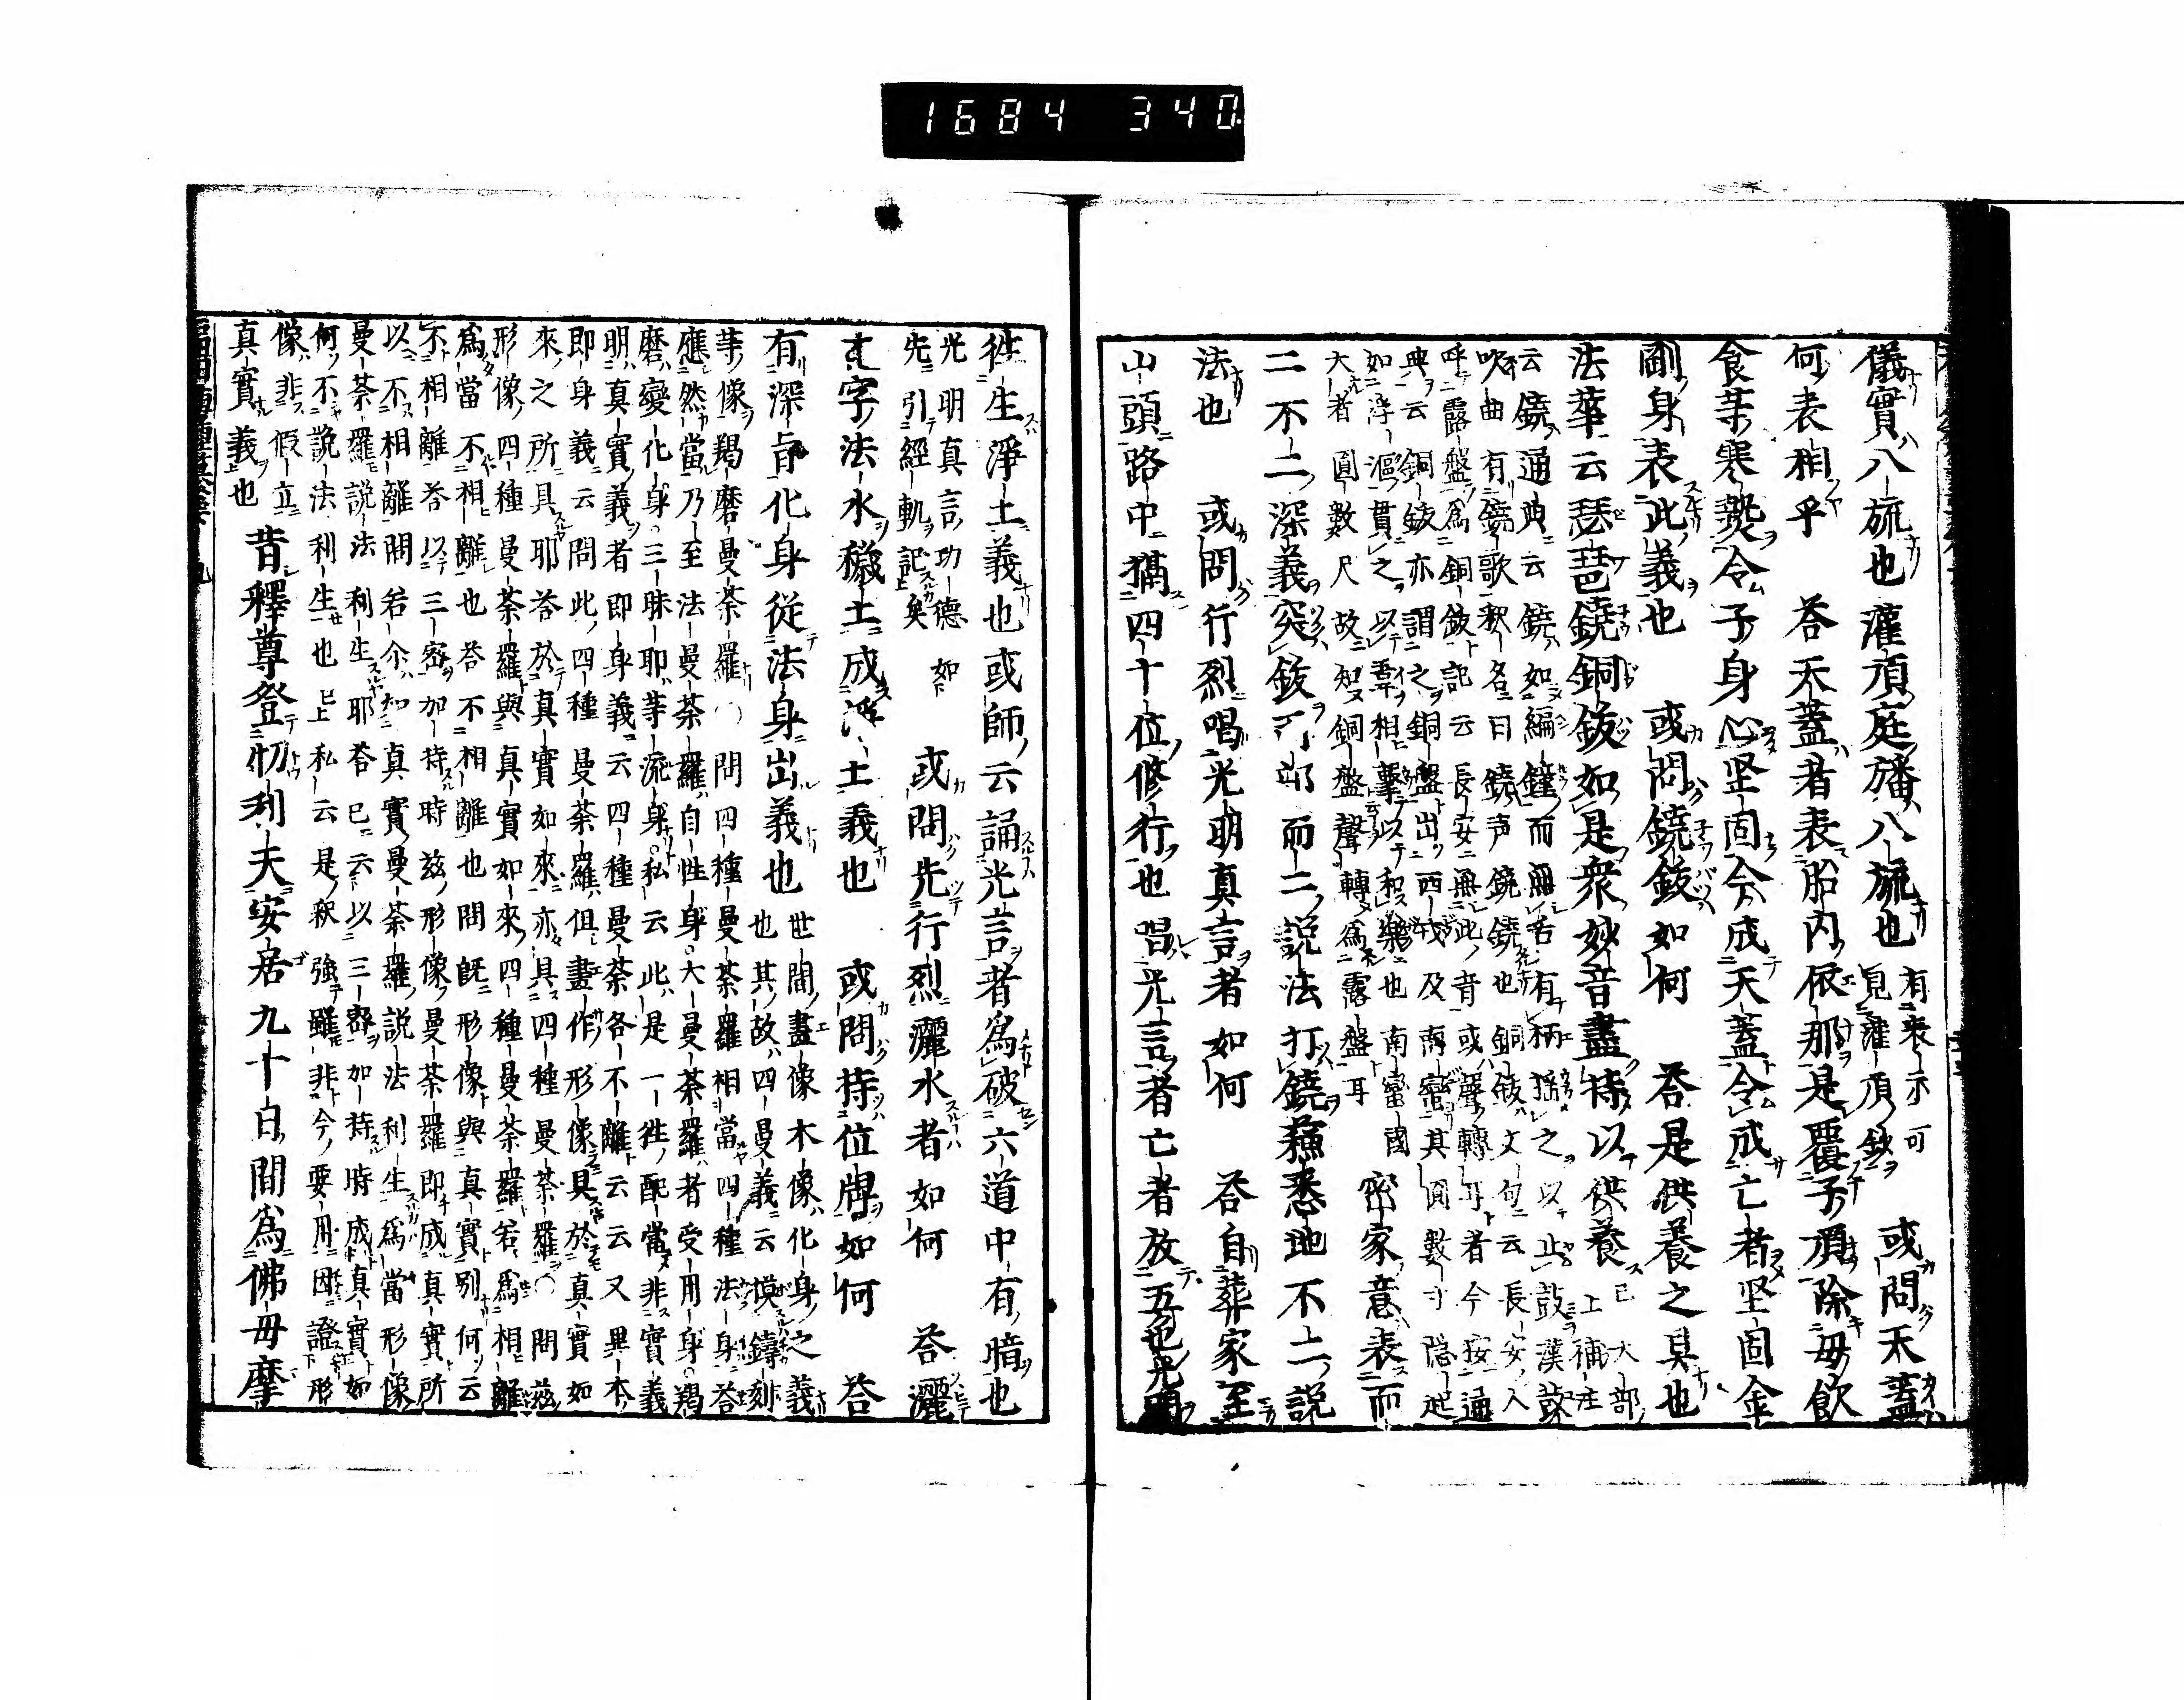 1684 340
儀實八旒也灌頂庭旛八旒也有表示可見灌頂鈔 或問天蓋
何表相乎 答天蓋者表胎內依那是覆子頂除毋飲
食等寒熱令子身心坚固今成天蓋令成亡者坚固金
剛身表此義也 或問鐃鈸如何 答是供養之具也
法華云琵琶鐃銅鈸如是衆妙音盡持以供養 已上
大部補注
云鐃通典云鐃如編鐘而無舌有柄揺之以止鼓漢鼓
吹曲有鐃歌釈名曰鐃声鐃鐃也銅鈸文句云長安人
呼露盤為銅鈸記云長安無此音或聲轉耳者今按通
典云銅鈸亦謂之銅盤出西戎及南蠻其圓數寸隠起
如浮漚貫之以葦相撃以和樂也南蠻國
大者圓數尺故知銅盤聲轉為露盤耳
密家意表而
二不二深義突鈸 而二說法打鐃蘓悉地不二說
法也 或問行烈唱光明真言者如何 答自葬家至
山頭路中 四十位修行也唱光言者亡者放五 光
往生淨土義也或師云誦光言者為破六道中有暗也
光明真言功德如
先引經軌記矣
或問先行烈灑水者如何 答灑
字法水穢土成淨土義也 或問持位牌如何 答
有深旨化身従法身出義也
世間畫像木像化身之義
也其故四曼義云模鑄刻
等像羯磨曼荼羅○問四種曼荼羅相當四種法身答
應然當乃至法曼荼羅自性身大曼荼羅者受用身羯
磨變化身三昧耶等流身私云此是一往配當非實義
明真實義者即身義云四種曼荼各不離云云又異本
即身義云問此四種曼荼羅但畫作形像具於真實如
來之所具耶答於真實如來亦具四種曼荼羅○問茲
形像四種曼荼羅與真實如來四種曼荼羅若為相離
為當不相離也答不相離也問既形像與真實別何云
不相離答以三密加持時茲形像曼荼羅即成真實所
以不相離問若尓如真實曼荼羅說法利生為當形像
曼荼羅說法利生耶答已云以三密加持時成真實如
何不說法利生也已上私云是釈強雖非今要用因證形
像非假立
真實義也 昔釋尊登忉利天安居九十日間為佛毋摩